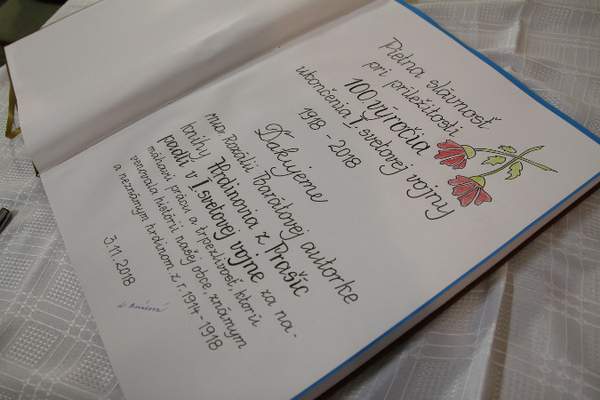 Pietna slávnosť
pri príležitosti
100 výročia
ukončenia I. svetovej vojny
1918 - 2018
Ďakujeme
autorke
knihy Hrdinovia z Prašíc
padlí v I. svetovej vojne za na-
máhavú prácu a trpezlivosť, ktorú
venovala histórii našej obce, známym
a neznámym hrdinom z r. 1914 - 1918
3.11.2018